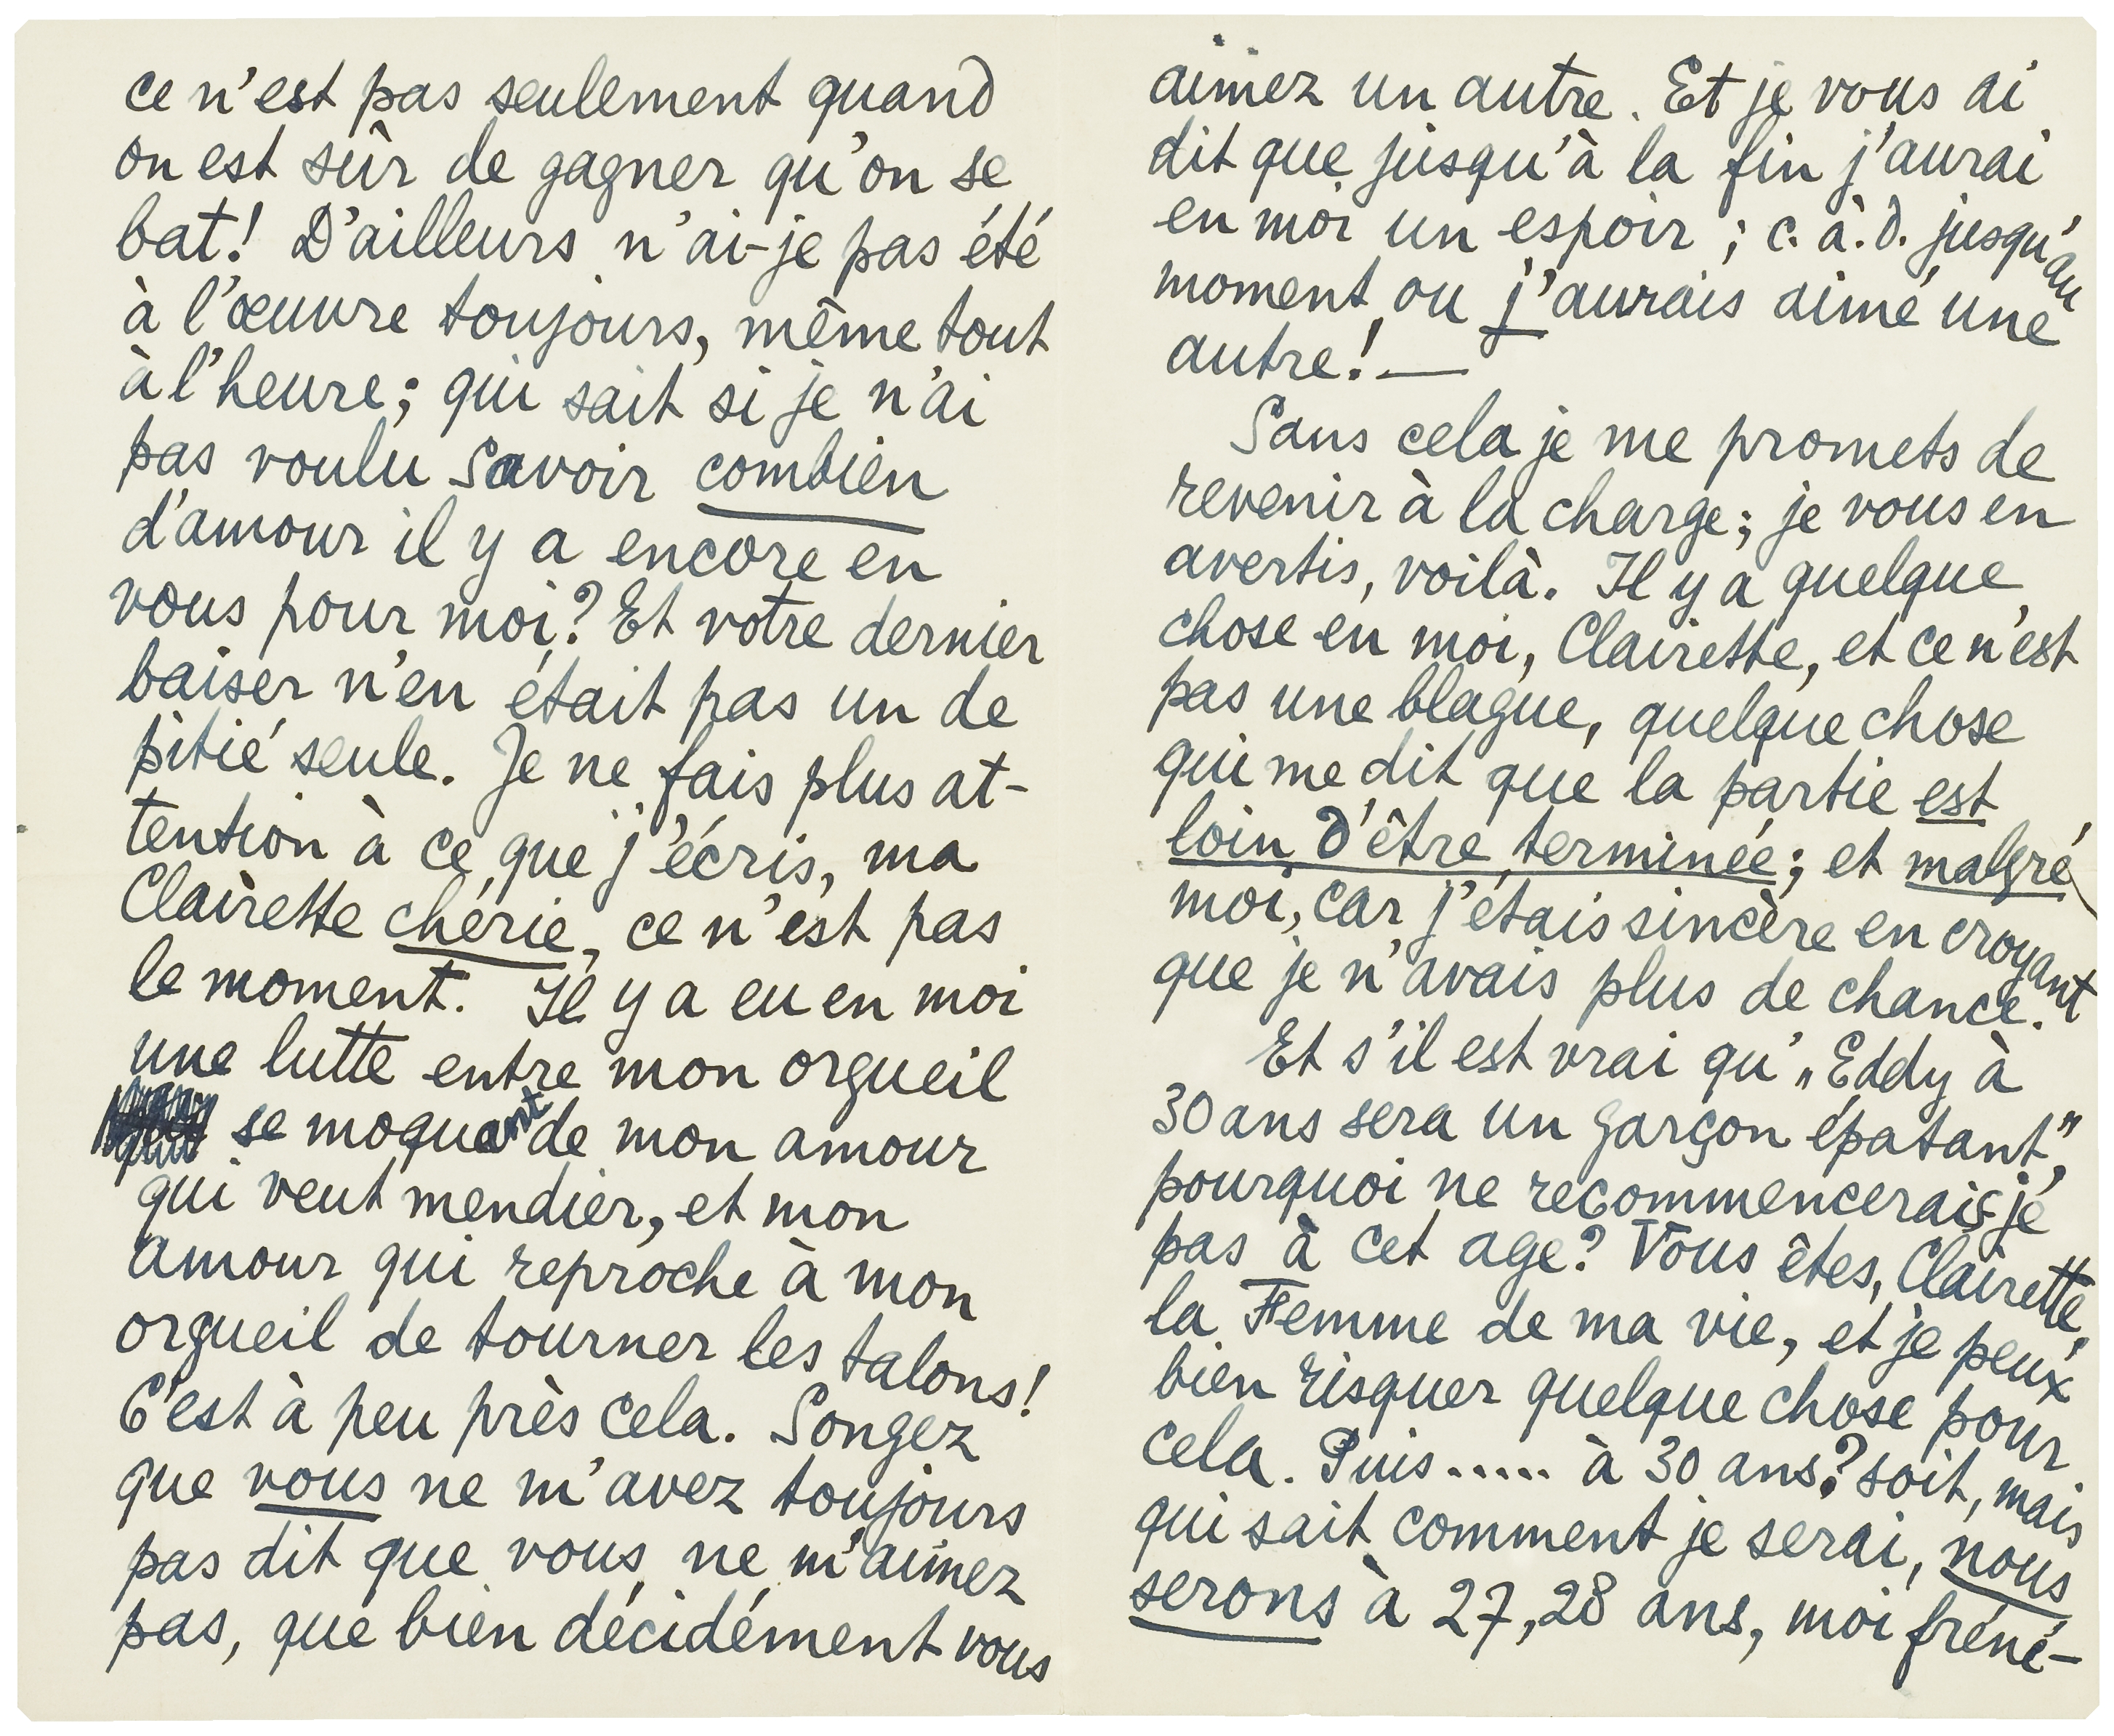 ce n'est pas seulement quand
on est sûr de gagner qu'on se
bat! D'ailleurs n'ai-je pas été
à l'œuvre toujours, même tout
à l'heure; qui sait si je n'ai
pas voulu savoir combien
d'amour il y a encore en
vous pour moi? Et votre dernier
baiser n'en était pas un de
pitié seule. Je ne fais plus at-
tention à ce que j'écris, ma
Clairette chérie, ce n'est pas
le moment. Il y a eu en moi
une lutte entre mon orgueil
se moquant de mon amour
qui veut mendier, et mon
amour qui reproche à mon
orgueil de tourner les talons!
C'est à peu près cela. Songez
que vous ne m'avez toujours
pas dit que vous ne m'aimez
pas, que bien décidément vous
aimez un autre. Et je vous ai
dit que jusqu'à la fin j'aurai
en moi un espoir; c.à.d. jusqu'au
moment ou j'aurais aimé une
autre! —
Sans cela je me promets de
revenir à la charge; je vous en
avertis, voilà. Il y a quelque
chose en moi, Clairette, et ce n'est
pas une blague, quelque chose
qui me dit que la partie est
loin d'être terminée; et malgré
moi, car j'étais sincère en croyant
que je n'avais plus de chance.
Et s'il est vrai qu'„Eddy à
30 ans sera un garçon épatant",
pourquoi ne recommencerais-je
pas à cet age? Vous êtes, Clairette,
la Femme de ma vie, et je peux
bien risquer quelque chose pour
cela. Puis..... à 30 ans? soit, mais
qui sait comment je serai, nous
serons à 27, 28 ans, moi fréné-